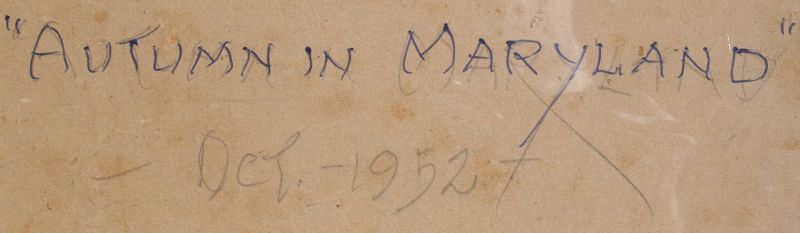 "AUTUMN IN MARYLAND"
- Oct. - 1952 -